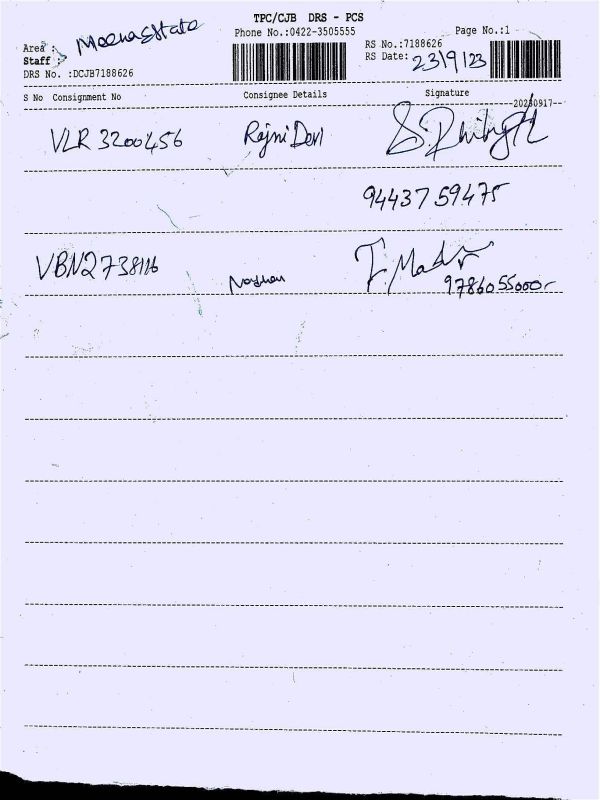 TPC/CJB DRS - PCS
Phone No.:0422-3505555 Page No.:1
Area : Meena Estate
RS No.:7188626
Staff :
RS Date: 23/9/23
DRS No. :DCJB7188626
S No Consignment No Consignee Details Signature
20230917--
VLR 3200456 Rajni Devi
94437 59475
VBN2738116
9786055000-